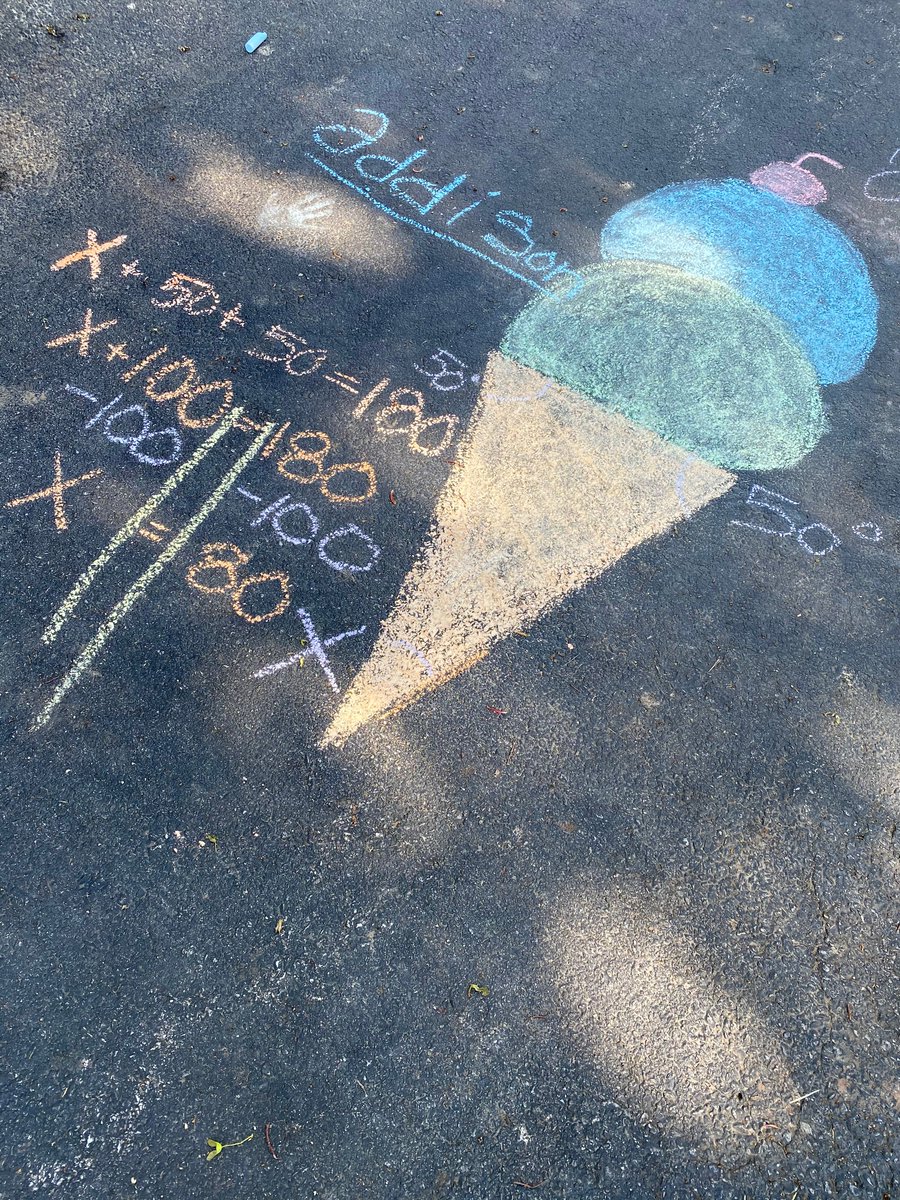 addison
X + 50 + 50 = 180
X + 100 = 180
-100 -100
X = 80
50°
50°
X